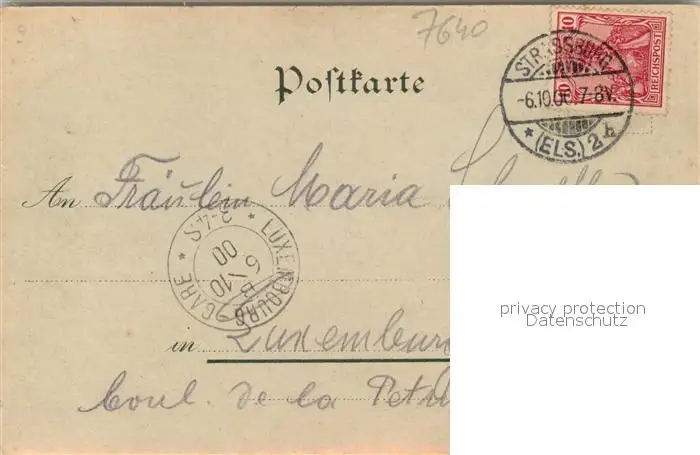 7640
10 10 REICHSPOST
STRASSBURG
-6.10.00.7-8V.
* (ELS.) 2
Postkarte
An Fräulein Maria
* LUXEMBOURG GARE *
2-4S
00
6/10
in Luxemburg
boul. de la
privacy protection
Datenschutz